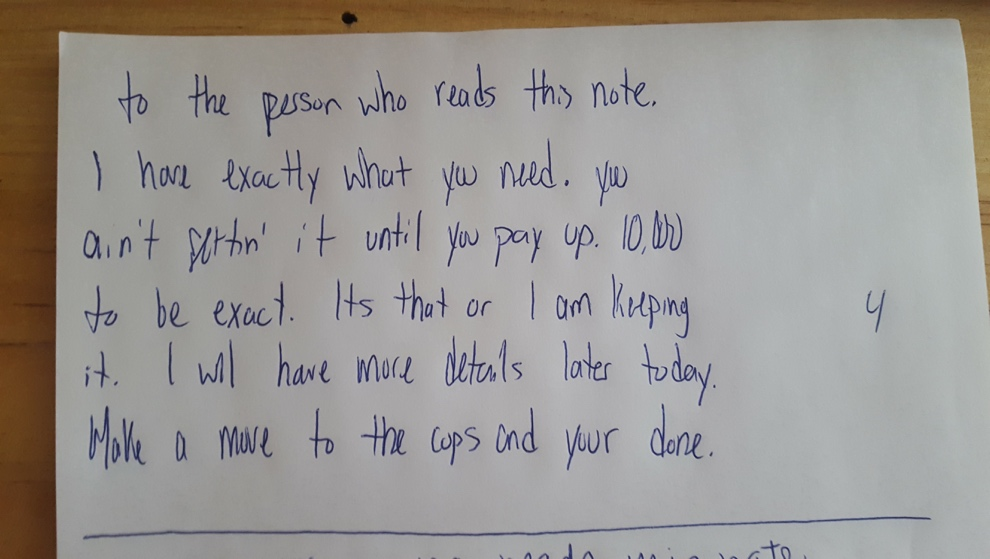 to the person who reads this note.
I have exactly what you need. you
ain't gettin' it until you pay up. 10,000
to be exact. Its that or I am keeping 4
it. I will have more details later today.
Make a move to the cops and your done.
note.